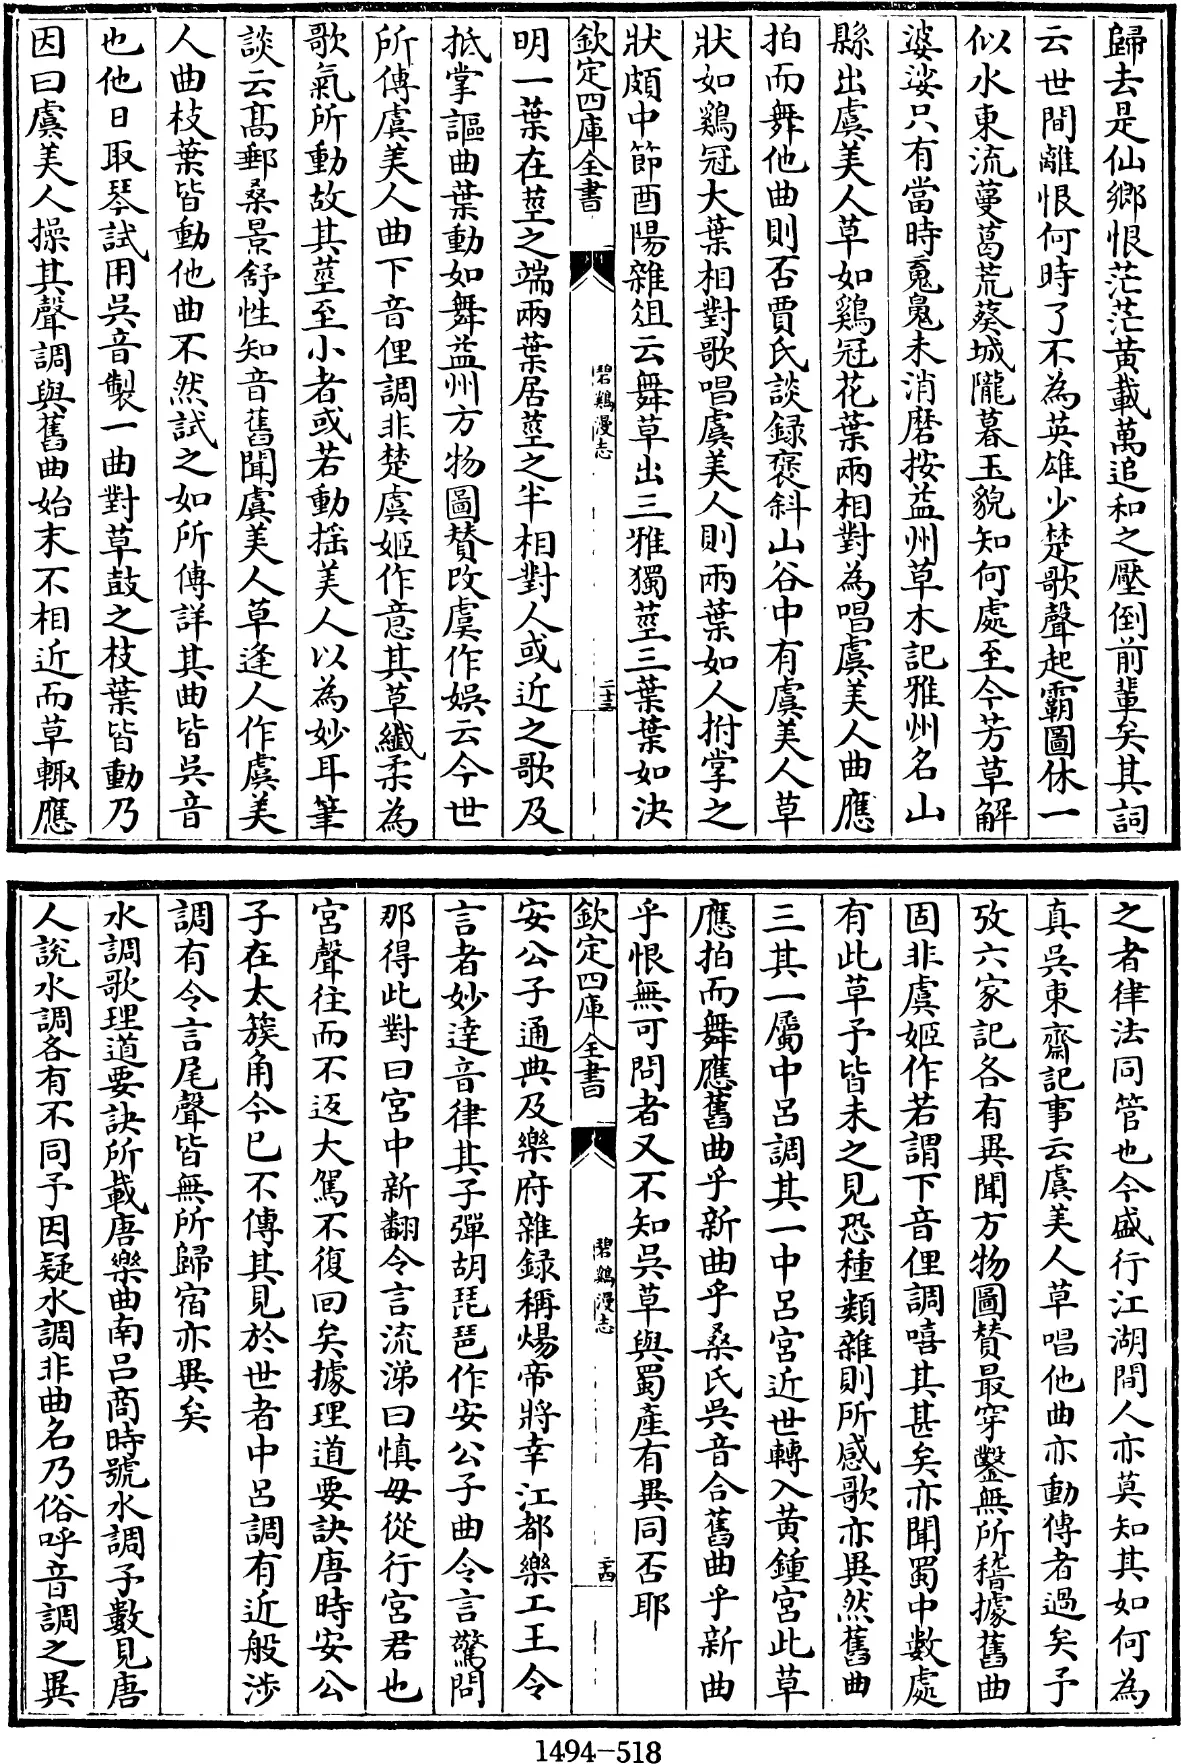 歸去是仙鄉恨茫茫黄載萬追和之壓倒前輩矣其詞
云世間離恨何時了不為英雄少楚歌聲起霸圖休一
似水東流蔓葛荒葵城隴暮玉貌知何處至今芳草解
婆娑只有當時䰟魄未消磨按益州草木記雅州名山
縣出虞美人草如鷄冠花葉兩相對為唱虞美人曲應
拍而舞他曲則否賈氏談録褒斜山谷中有虞美人草
狀如鷄冠大葉相對歌唱虞美人則兩葉如人拊掌之
狀頗中節酉陽雜俎云舞草出三雅獨莖三葉葉如決
欽定四庫全書
碧鷄漫志
二十三
明一葉在莖之端兩葉居莖之半相對人或近之歌及
抵掌謳曲葉動如舞益州方物圖賛改虞作娯云今世
所傳虞美人曲下音俚調非楚虞姬作意其草纖柔為
歌氣所動故其莖至小者或若動揺美人以為妙耳筆
談云髙郵桑景舒性知音舊聞虞美人草逢人作虞美
人曲枝葉皆動他曲不然試之如所傳詳其曲皆吳音
也他日取琴試用吳音製一曲對草鼓之枝葉皆動乃
因曰虞美人操其聲調與舊曲始末不相近而草輙應
之者律法同管也今盛行江湖間人亦莫知其如何為
真吳東齋記事云虞美人草唱他曲亦動傳者過矣予
攷六家記各有異聞方物圖賛最穿鑿無所稽據舊曲
固非虞姬作若謂下音俚調嘻其甚矣亦聞蜀中數處
有此草予皆未之見恐種類雜則所感歌亦異然舊曲
三其一屬中呂調其一中呂宮近世轉入黄鍾宮此草
應拍而舞應舊曲乎新曲乎桑氏吳音合舊曲乎新曲
乎恨無可問者又不知吳草與蜀產有異同否耶
欽定四庫全書
碧鷄漫志
二十四
安公子通典及樂府雜録稱煬帝將幸江都樂工王令
言者妙達音律其子彈胡琵琶作安公子曲令言驚問
那得此對曰宮中新翻令言流涕曰慎毋從行宮君也
宮聲往而不返大駕不復回矣據理道要訣唐時安公
子在太簇角今已不傳其見於世者中呂調有近般涉
調有令言尾聲皆無所歸宿亦異矣
水調歌理道要訣所載唐樂曲南呂商時號水調予數見唐
人說水調各有不同予因疑水調非曲名乃俗呼音調之異
1494-518